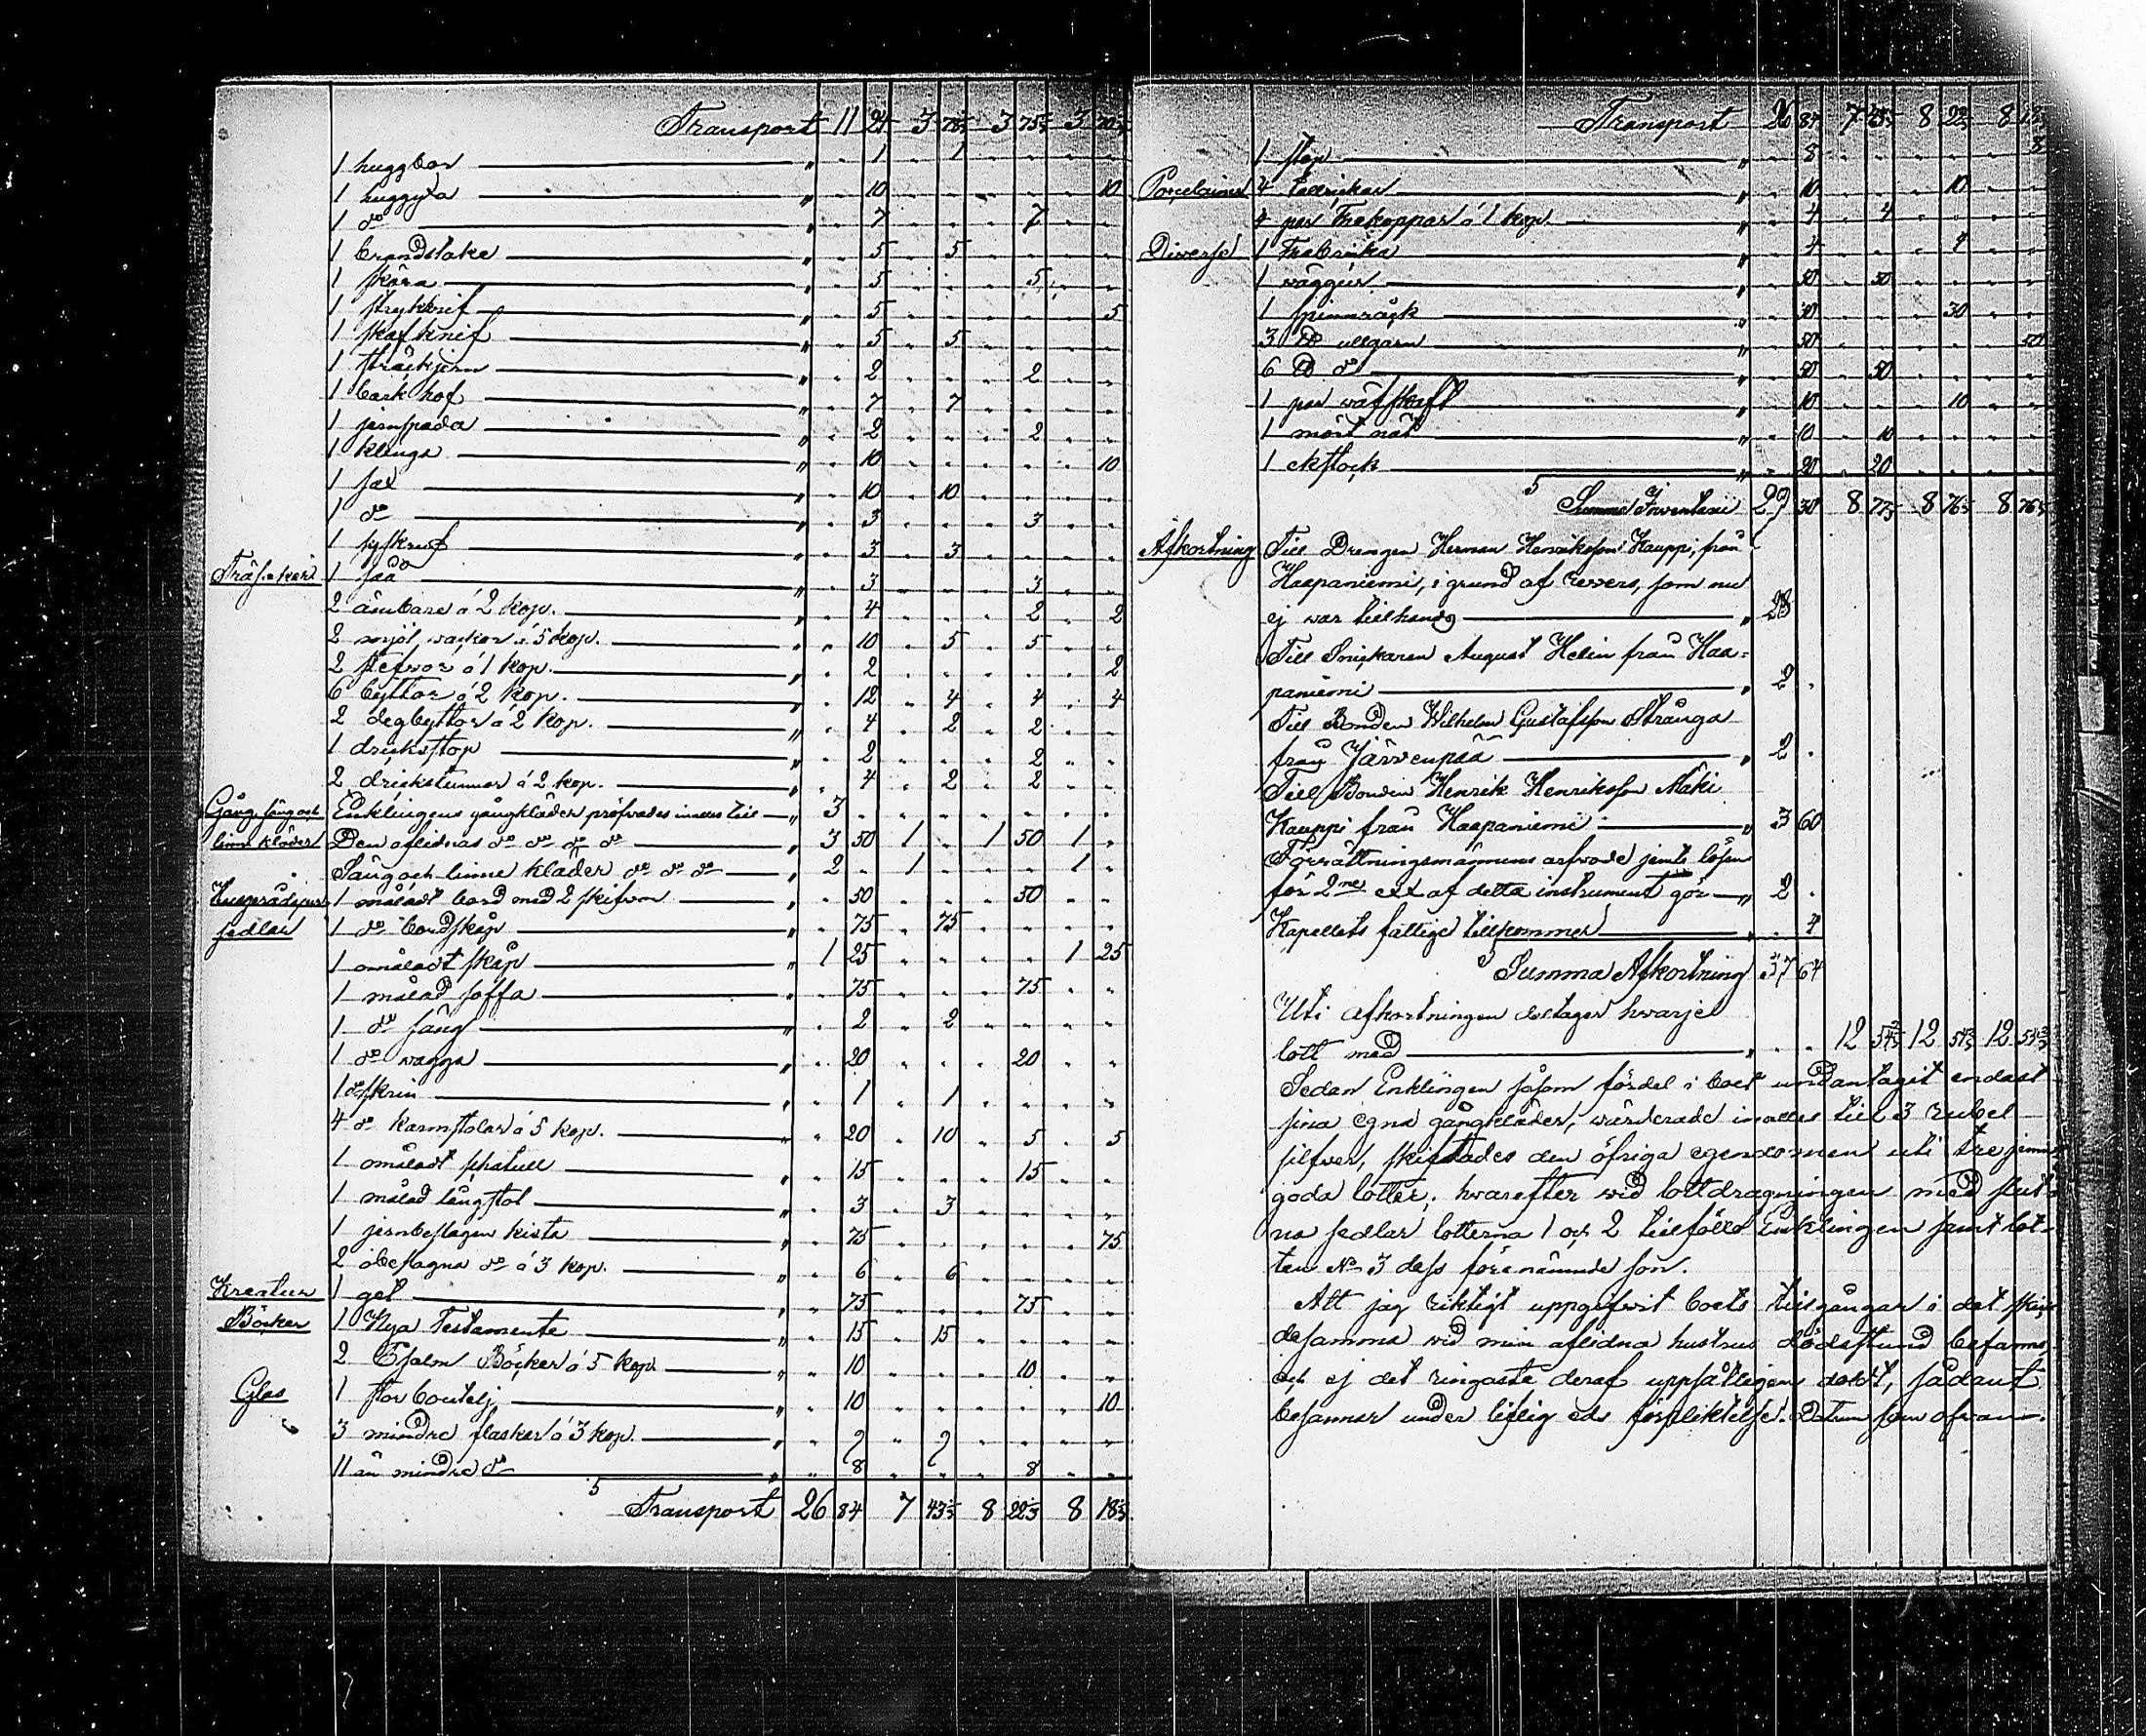 Transport 11 24 3 78 3 75 3 70
1 huggbor " . 1 . 1
1 huggyxa " . 10 . 10
1 do " . 7 . 7
1 brandstake " . 5 . 5
1 skära " . 5 . 5
1 strykknif " . 5 . 5
1 skafknif " . 5 . 5
1 sträckjern " . 2 . 2
1 bark hof " . 7 . 7
1 jernspada " . 2 . 2
1 klinga " . 10 . 10
1 sax " . 10 . 10
1 do " . 3 . 3
1 " . 3 . 3
Träsaker 1 såå " . 3 . 3
2 ämbare á 2 kop. " . 4 . 2 . 2
2 mjöl á 5 kop. " . 10 . 5 . 5
2 stefvor á 1 kop. " . 2 . 2
6 byttor á 2 kop. " . 12 . 4 . 4 . 4
2 degbyttor á 2 kop. " . 4 . 2 . 2
1 dricksstop " . 2 . 2
2 drickstunnor á 2 kop. " . 4 . 2 . 2
Gång säng och Enklingens gångkläder pröfvades innalles till " 3 .
linne kläder Den aflidnas do do do do " 3 50 1 . 1 50 1 .
Säng och linne kläder do do do " 2 . 1 . 1 .
Husgeråds 1 måladt bord med 2 skifvor " . 50 . 50
sedlar 1 do bordskåp " . 75 . 75
1 omåladt skåp " 1 25 1 25
1 målad soffa " . 75 . 75
1 do säng " . 2 . 2
1 do vagga " . 20 . 20
1 do skrin " . 1 . 1
4 do karmstolar á 5 kop. " . 20 . 10 . 5 . 5
1 omåladt schatull " . 15 . 15
1 målad långstol " . 3 . 3
1 jernbeslagen kista " . 75 . 75
2 obeslagna do á 3 kop. " . 6 . 6
Kreatur 1 get " . 75 . 75
Böcker 1 Nya Testamente " . 15 . 15
2 Psalm Böcker á 5 kop. " . 10 . 10
Glas 1 stor boutelj " . 10 . 10
3 mindre flaskor á 3 kop. " . 9 . 9
11 än mindre do " . 8 . 8
Transport 26 84 7 43 8 22 8 18
Transport 26 84 7 43 8 22 8 18
1 stop " . 8 . 8
Porcelainer 4 tallrickar " . 10 . 10
4 par Thekoppar á 1 kop. " . 4 . 4
Diverse 1 Thebricka " . 4 . 4
1 väggur " . 50 . 50
1 spinnråck " . 30 . 30
3 ℔ ullgarn " . 50 . 50
6 ℔ do " . 50 . 50
1 par väfskaft " . 10 . 10
1 mört nät " . 10 . 10
1 ekstock " . 20 . 20
Summa Inventarii 29 30 8 77 8 76 8 76
Afkortning Till Drengen Herman Henriksson Kauppi, från
Haapaniemi, i grund af revers, som nu
ej war tillhands " 28
Till Snickaren August Helin från Haa-
paniemi " 2 .
Till Bonden Wilhelm Gustafsson Strånga
från Järvenpää " 2 .
Till Bonden Henrik Henriksson Mäki
Kauppi från Haapaniemi " 3 60
Förrättningsmännens arfvode jemte lösen
för 2ne ex. af detta instrument gör " 2 .
Kapellets fattige tillkommer " . 4
Summa Afkortning 37 64
Uti afkortningen deltager hwarje
lott med " . . 12 54 12 54 12 54
Sedan Enklingen såsom fördel i boet undantagit endast
sina egna gångkläder, wärderade innalles till 3 rubel
silfver, skiftades den öfriga egendomen uti tre jemn-
goda lotter; hwarefter wid lottdragningen med slut-
na sedlar lotterna 1 och 2 tillföllo Enklingen samt lot-
ten No 3 dess förenämnde son.
Att jag riktigt uppgifwit boets tillgångar i det skick
desamma wid min aflidna hustrus dödsstund befanns,
och ej det ringaste deraf uppsåtligen doldt, sådant
besannar under liflig eds förpliktelse. Datum som ofvan.